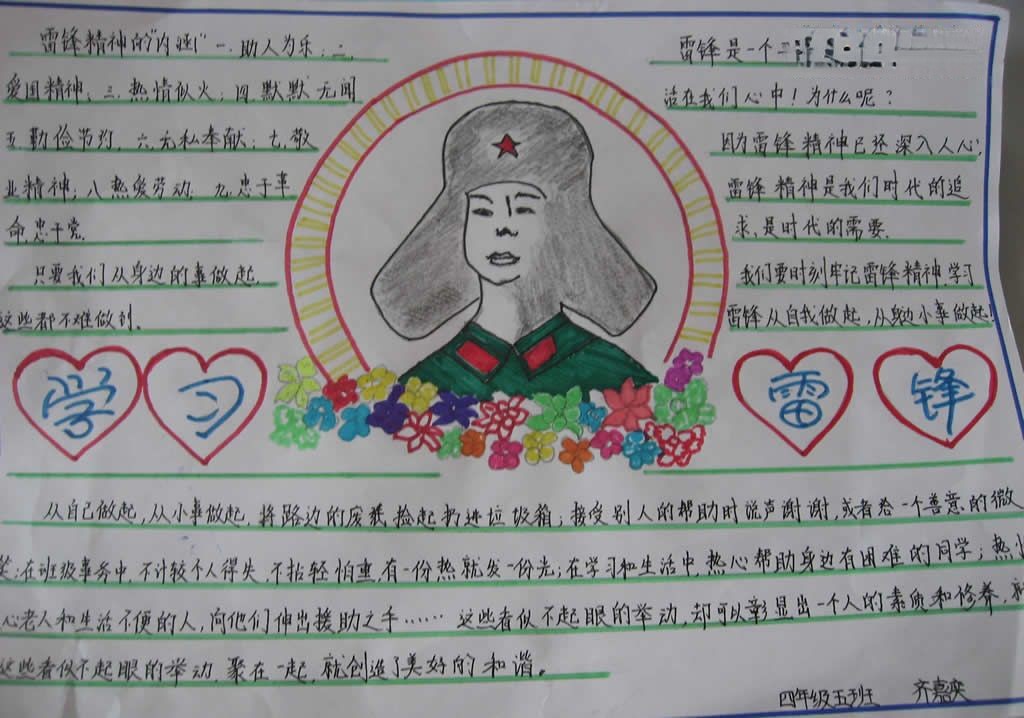 雷锋精神的"内涵"一.助人为乐;二.
爱国精神;三.热情似火;四.默默无闻
五.勤俭节约,六.无私奉献;七.敬
业精神;八.热爱劳动.九.忠于革
命,忠于党.
只要我们从身边的事做起,
这些都不难做到.
雷锋是一个
活在我们心中!为什么呢?
因为雷锋精神已经深入人心,
雷锋精神是我们时代的追
求,是时代的需要.
我们要时刻牢记雷锋精神.学习
雷锋从自我做起,从身边小事做起!
学习 雷锋
从自己做起,从小事做起,将路边的废纸捡起扔进垃圾箱;接受别人的帮助时说声谢谢,或者给一个善意的微
笑;在班级事务中,不计较个人得失,不拈轻怕重,有一份热就发一份光;在学习和生活中,热心帮助身边有困难的同学;热
心老人和生活不便的人,向他们伸出援助之手……这些看似不起眼的举动,却可以彰显出一个人的素质和修养,
这些看似不起眼的举动,聚在一起,就创造了美好的和谐。
四年级五班 齐嘉奕